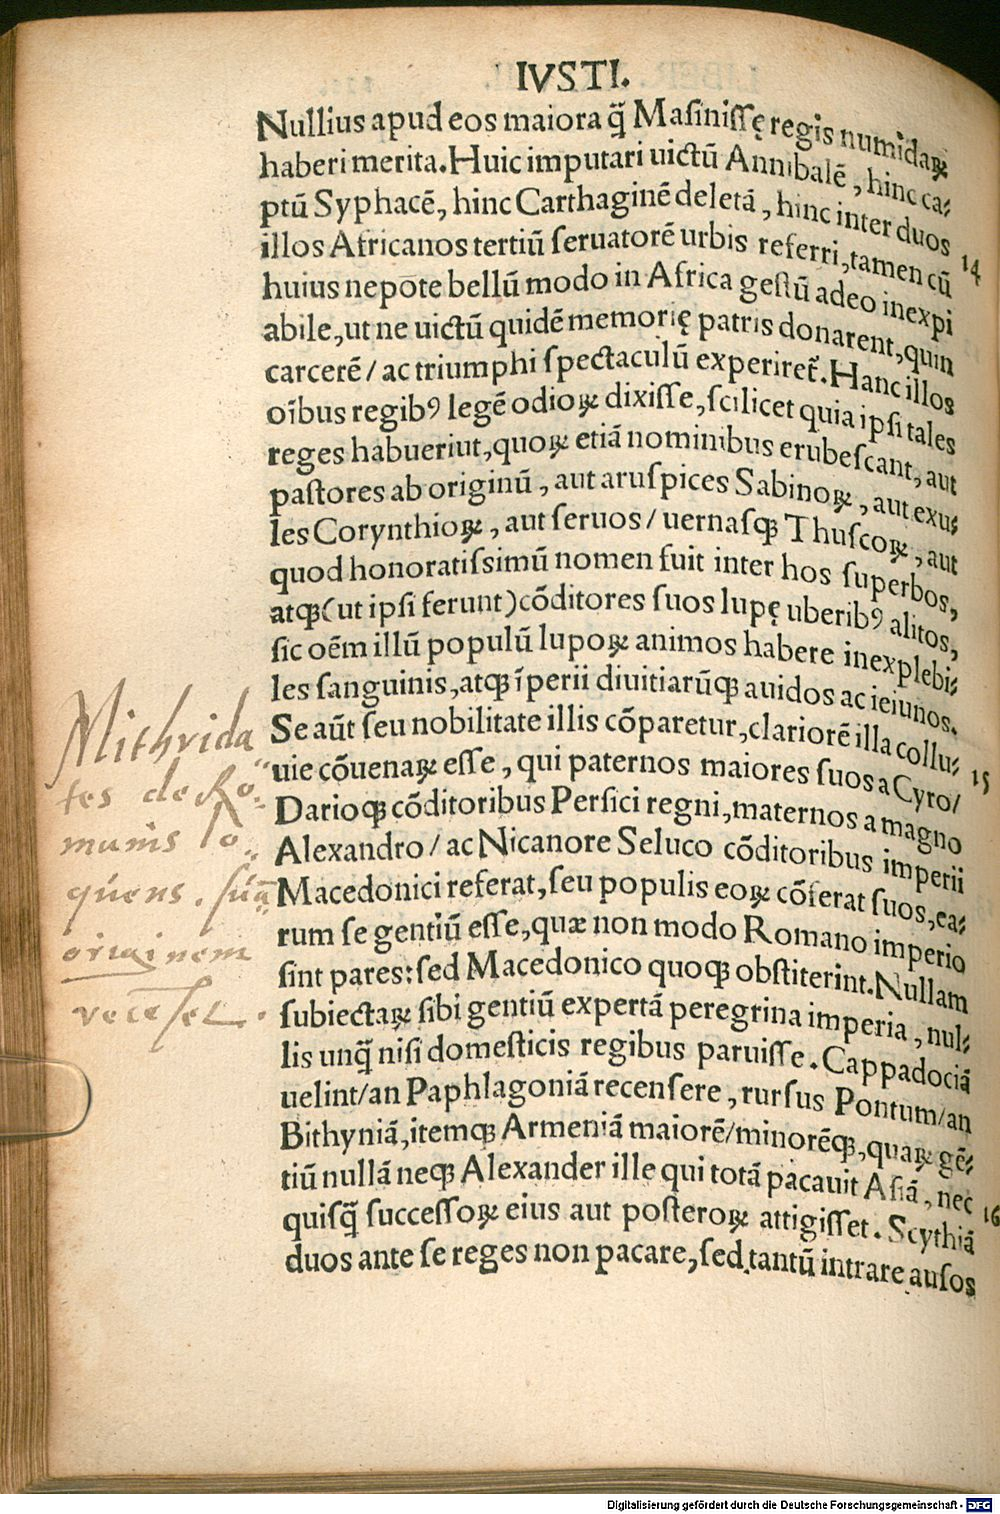 IVSTI.
Nullius apud eos maiora q̃ Masinissę regis numidaꝝ
haberi merita. Huic imputari uictũ Annibalẽ, hinc ca⸗
ptũ Syphacẽ, hinc Carthaginẽ deletã, hinc inter duos
illos Africanos tertiũ seruatorẽ urbis referri, tamen cũ
14
huius nepōte bellũ modo in Africa gestũ adeo inexpi
abile, ut ne uictũ quidẽ memorię patris donarent, quin
carcerẽ/ ac triumphi spectaculũ experiret̃. Hanc illos
oĩbus regibꝰ legẽ odioꝝ dixisse, scilicet quia ipsi tales
reges habueriut, quoꝝ etiã nominibus erubescant, aut
pastores ab originũ, aut aruspices Sabinoꝝ, aut exu⸗
les Corynthioꝝ, aut seruos/ uernasqꝫ Thuscoꝝ, aut
quod honoratissimũ nomen fuit inter hos superbos,
atqꝫ(ut ipsi ferunt)cõditores suos lupę uberibꝰ alitos,
sic oẽm illũ populũ lupoꝝ animos habere inexplebi⸗
les sanguinis, atqꝫ ĩperii diuitiarũqꝫ auidos ac ieiunos.
Se aũt seu nobilitate illis cõparetur, clariorẽ illa collu⸗
uie cõuenaꝝ esse, qui paternos maiores suos a Cyro/
15
Darioqꝫ cõditoribus Persici regni, maternos a magno
Alexandro/ ac Nicanore Seluco cõditoribus imperii
Macedonici referat, seu populis eoꝝ cõferat suos, ea⸗
rum se gentiũ esse, quæ non modo Romano imperio
sint pares: sed Macedonico quoqꝫ obstiterint. Nullam
subiectaꝝ sibi gentiũ expertã peregrina imperia, nul⸗
lis unq̃ nisi domesticis regibus paruisse. Cappadociã
uelint/an Paphlagoniã recensere, rursus Pontum/an
Bithyniã, itemqꝫ Armeniã maiorẽ/minorẽqꝫ, quaꝝ gẽ⸗
tiũ nullã neqꝫ Alexander ille qui totã pacauit Asiã, nec
quisq̃ successoꝝ eius aut posteroꝝ attigisset. Scythiã
16
duos ante se reges non pacare, sed tantũ intrare ausos
Mithrida
tes de Ro⸗
manis lo⸗
quens. suã
originem
recēset.
Digitalisierung gefördert durch die Deutsche Forschungsgemeinschaft - DFG